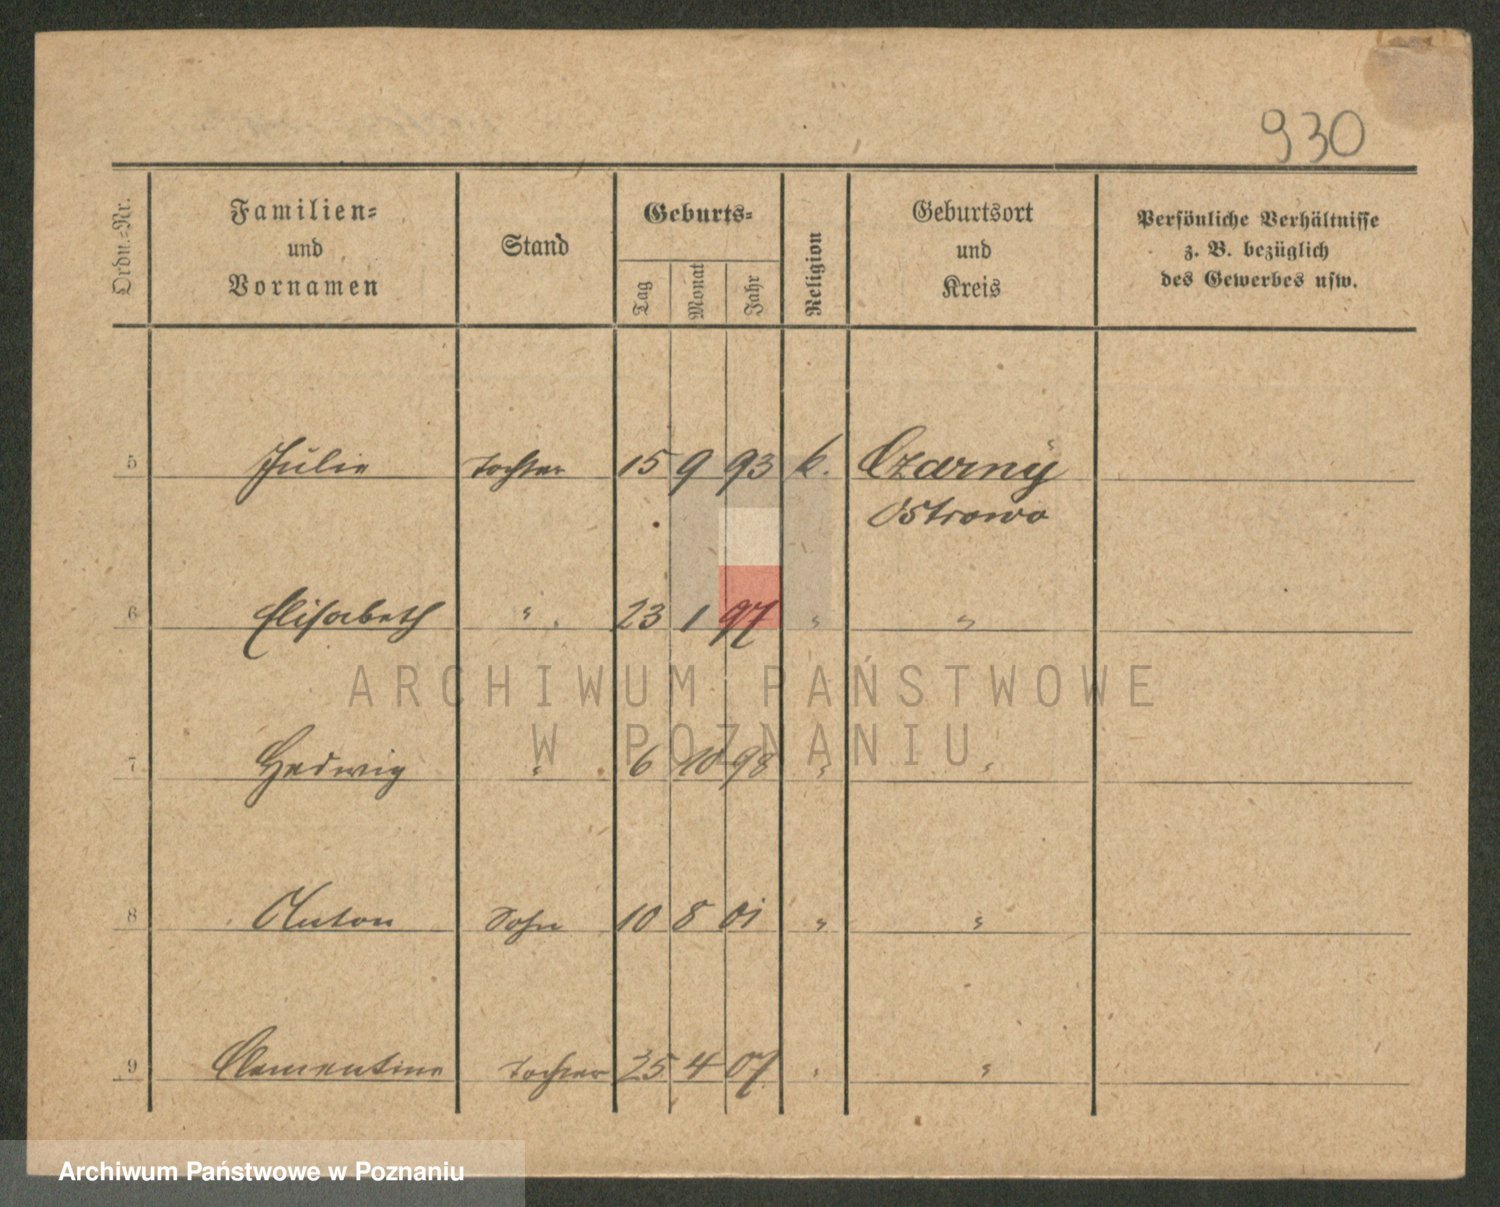 930
Ordn.-Nr.
Familien-
und
Vornamen
Stand
Geburts-
Tag
Monat
Jahr
Religion
Geburtsort
und
Kreis
Persönliche Verhältnisse
z. B. bezüglich
des Gewerbes usw.
5 Julie Tochter 15 9 93 k. Czarny
Ostrowo
6 Elisabeth " 23 1 97 " "
ARCHIWUM PAŃSTWOWE
W POZNANIU
7 Hedwig " 6 10 98 " "
8 Anton Sohn 10 8 01 " "
9 Clementine Tochter 25 4 07 " "
Archiwum Państwowe w Poznaniu